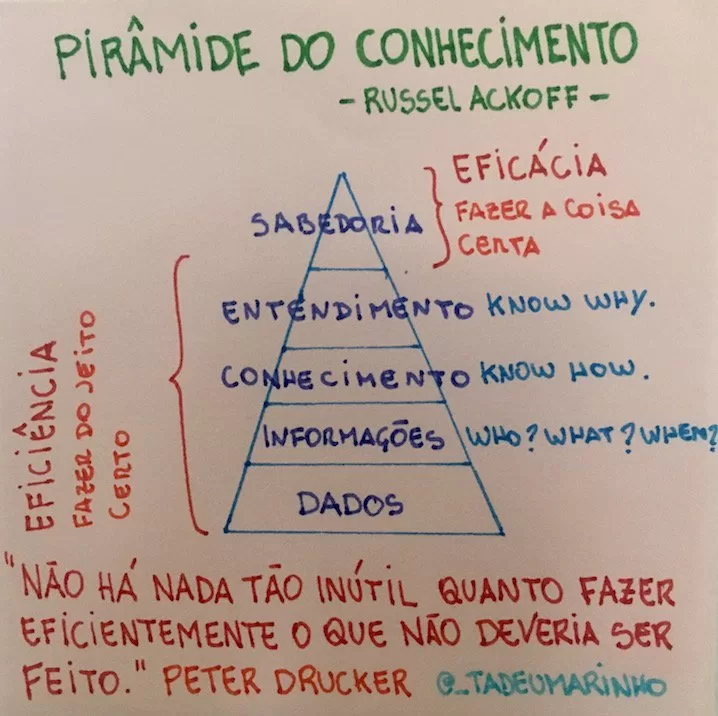 PIRÂMIDE DO CONHECIMENTO
- RUSSEL ACKOFF -
EFICÁCIA
FAZER A COISA
CERTA
SABEDORIA
ENTENDIMENTO KNOW WHY.
CONHECIMENTO KNOW HOW.
INFORMAÇÕES WHO? WHAT? WHEN?
DADOS
EFICIÊNCIA
FAZER DO JEITO
CERTO
"NÃO HÁ NADA TÃO INÚTIL QUANTO FAZER
EFICIENTEMENTE O QUE NÃO DEVERIA SER
FEITO." PETER DRUCKER @_TADEUMARINHO